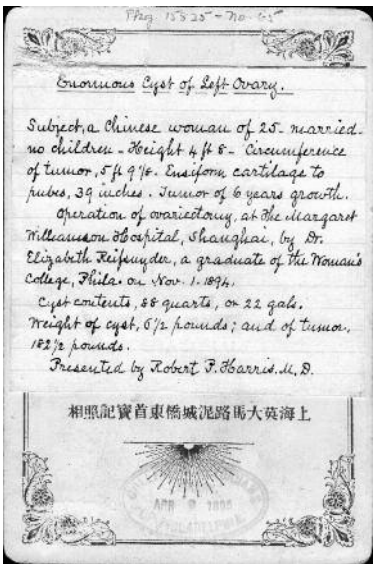 Enormous Cyst of Left Ovary.
Subject, a Chinese woman of 25 - married -
no children - Height 4 ft 8 - Circumference
of tumor, 5 ft 9 - Ensiform cartilage to
pubes, 39 inches. Tumor of 6 years growth.
Operation of ovariectomy, at the Margaret
Williamson Hospital, Shanghai, by Dr.
Elizabeth Reifsnyder, a graduate of the Woman's
College, Phila. on Nov. 1. 1894.
Cyst contents, 88 quarts, or 22 gals.
Weight of cyst, 6½ pounds; and of tumor,
182½ pounds.
Presented by Robert P. Harris. M. D.
上海英大馬路泥城橋東首寶記照相
APR 1895
PHILADELPHIA